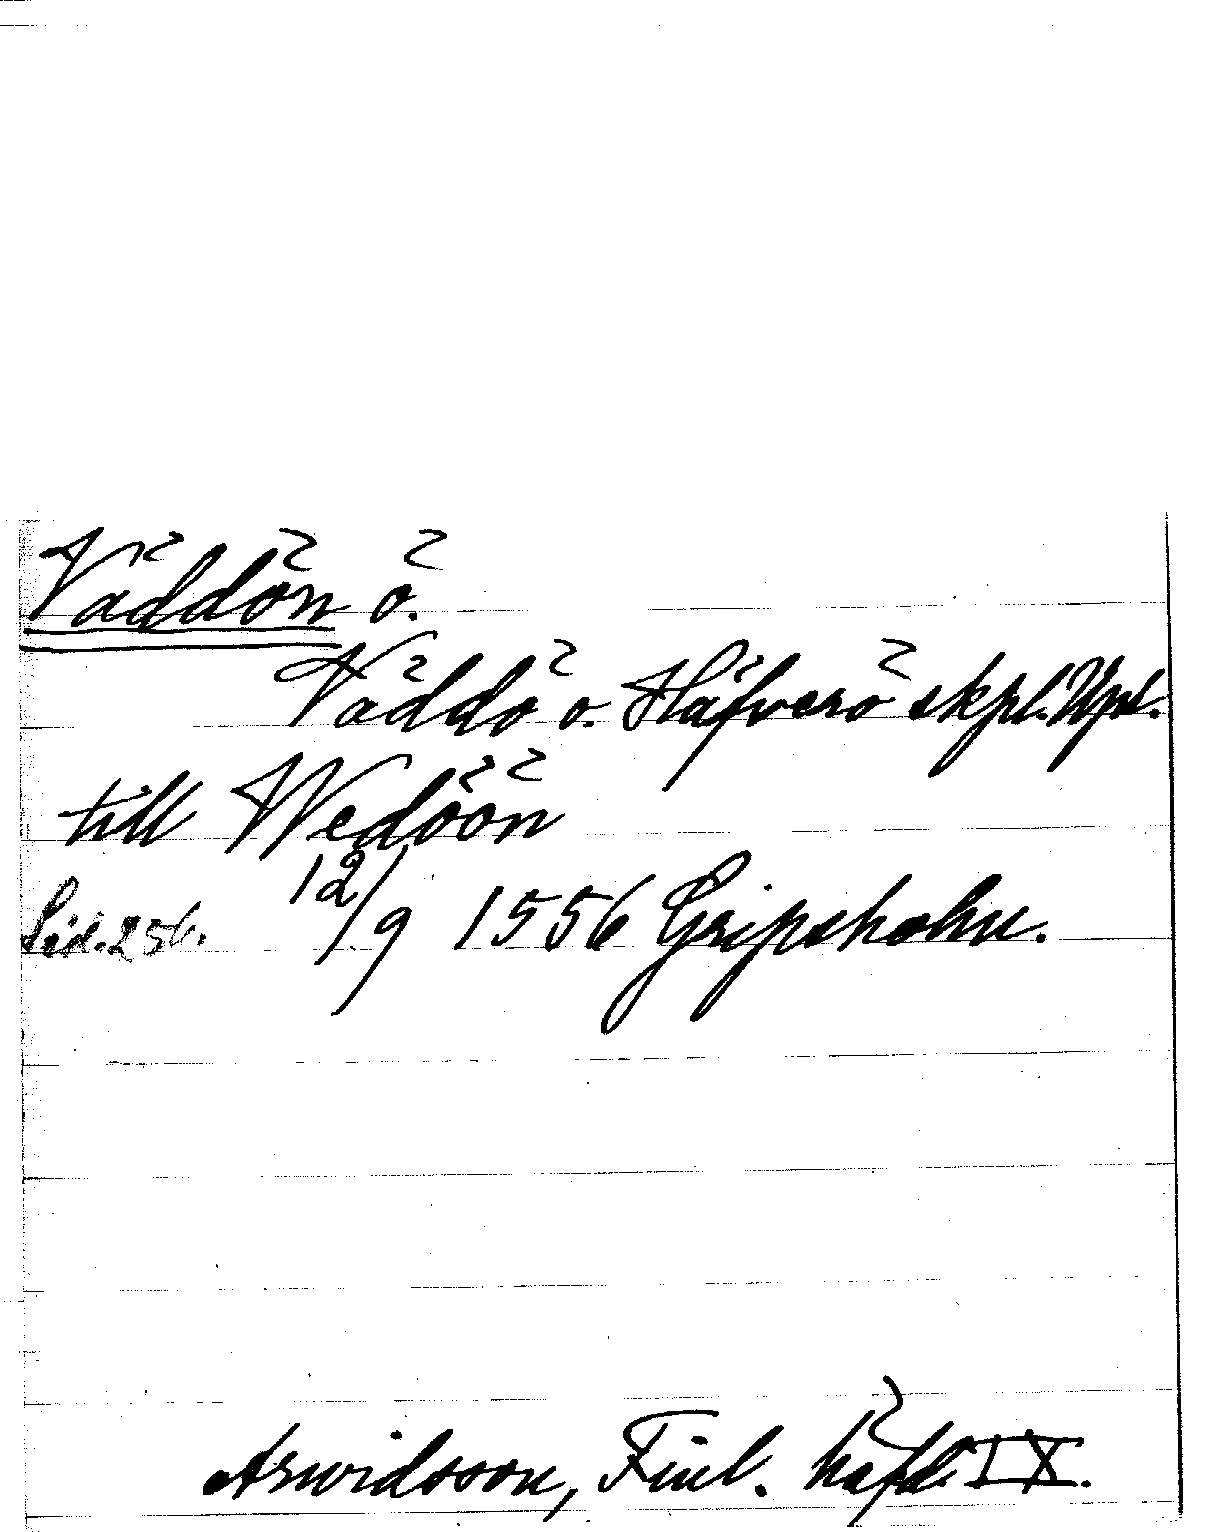 Väddön ö.
Väddö o. Häfverö skpl. Upl.
till Wedöön
Sid. 256. 12/9 1556 Gripsholm.
Arwidsson, Finl. häfd. IX.